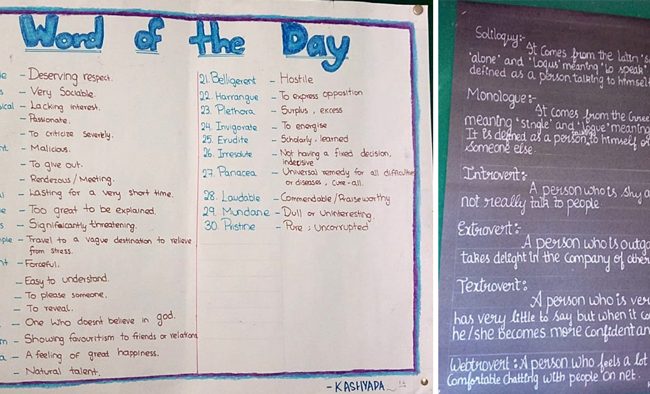 Word of the Day
- Deserving respect.
- Very Sociable.
- Lacking interest.
- Passionate.
- To criticize severely.
- Malicious.
- To give out.
- Rendezous / Meeting.
- Lasting for a very short time.
- Too great to be explained.
- Significantly threatening.
- Travel to a vague destination to relieve
from stress.
- Forceful.
- Easy to understand.
- To please someone.
- To reveal.
- One who doesn't believe in god.
- Showing favouritism to friends or relations
- A feeling of great happiness.
- Natural talent.
21. Belligerent - Hostile
22. Harrangue - To express opposition
23. Plethora - Surplus, excess
24. Invigorate - To energise
25. Erudite - Scholarly, learned
26. Irresolute - Not having a fixed decision,
indecisive
27. Panacea - Universal remedy for all difficulties
or diseases, cure-all.
28. Laudable - Commendable/Praiseworthy
29. Mundane - Dull or Uninteresting.
30. Pristine - Pure, uncorrupted
- KASHYADA
Soliloquy:-
It comes from the latin
'alone' and 'Loqus' meaning 'to speak'
defined as a person talking to himself
Monologue:-
It comes from the
meaning 'single' and 'logue' meaning
It is defined as a person talking to himself or
someone else.
Introvert:
A person who is shy a
not really talk to people
Extrovert:
A person who is outgo
takes delight in the company of other
Textrovert:
A person who is ver
has very little to say but when it co
he/she becomes more confident an
Webtrovert: A person who feels a lot
Comfortable Chatting with people on net.